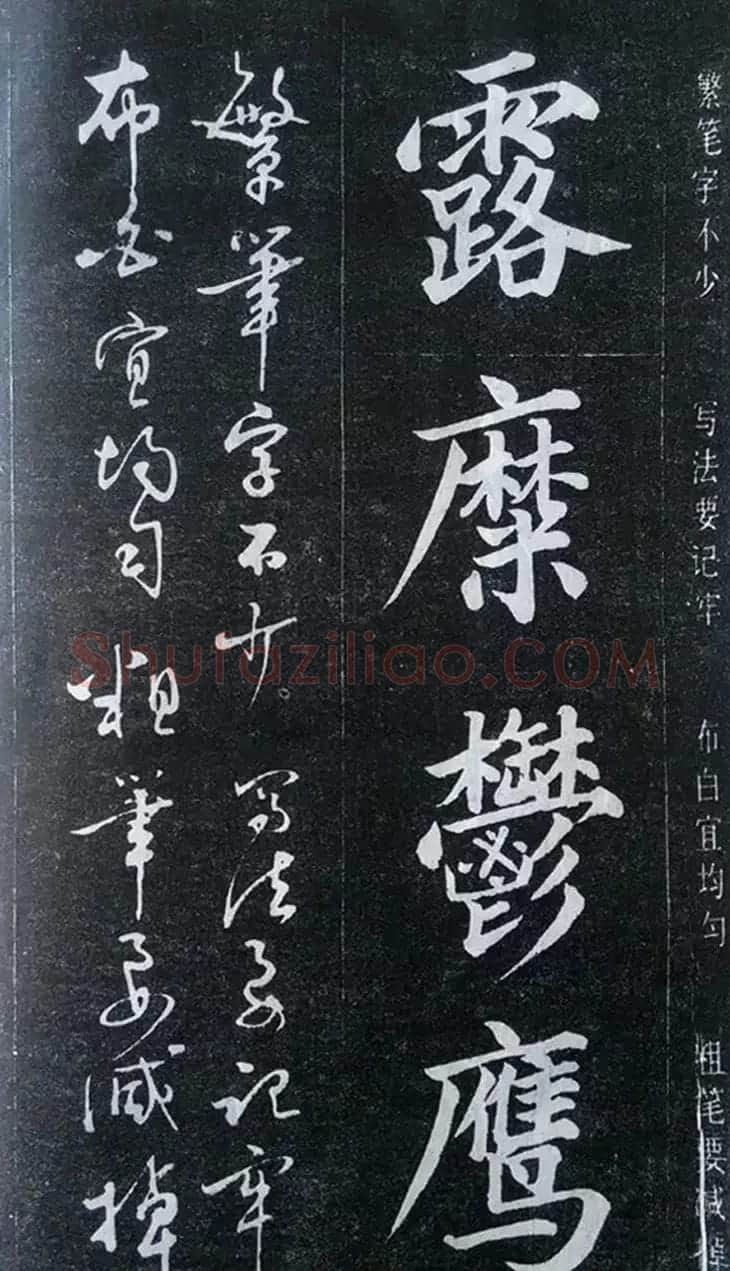 繁笔字不少 写法要记牢 布白宜均匀 粗笔要减掉
露糜鬱鹰
繁筆字不少。写法要記牢
布白宜均匀粗筆要减掉
Shufaziliao.COM